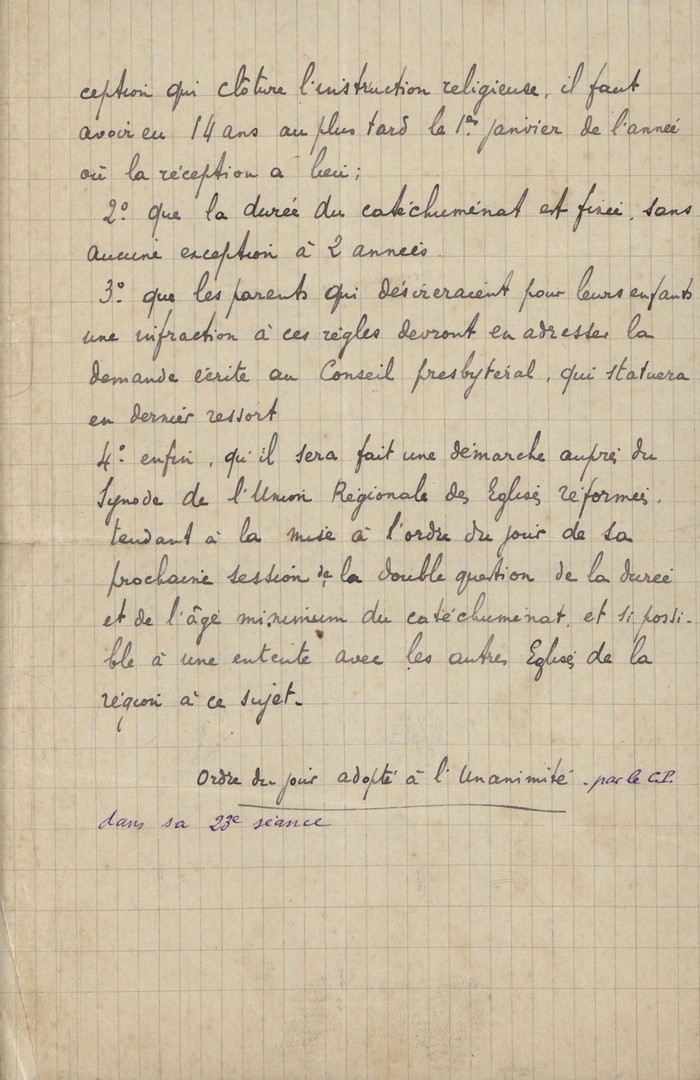 ception qui clôture l'instruction religieuse, il faut
avoir eu 14 ans au plus tard le 1er janvier de l'année
où la réception a lieu ;
2° que la durée du catéchuménat est fixée, sans
aucune exception à 2 années.
3° que les parents qui désireraient pour leurs enfants
une infraction à ces règles devront en adresser la
demande écrite au Conseil presbytéral, qui statuera
en dernier ressort
4° enfin, qu'il sera fait une démarche auprès du
Synode de l'Union Régionale des Eglises réformées.
tendant à la mise à l'ordre du jour de sa
prochaine session de la double question de la durée
et de l'âge minimum du catéchuménat, et si possi-
ble à une entente avec les autres Eglises de la
région à ce sujet.
Ordre du jour adopté à l'Unanimité. par le C.P.
dans sa 23e séance